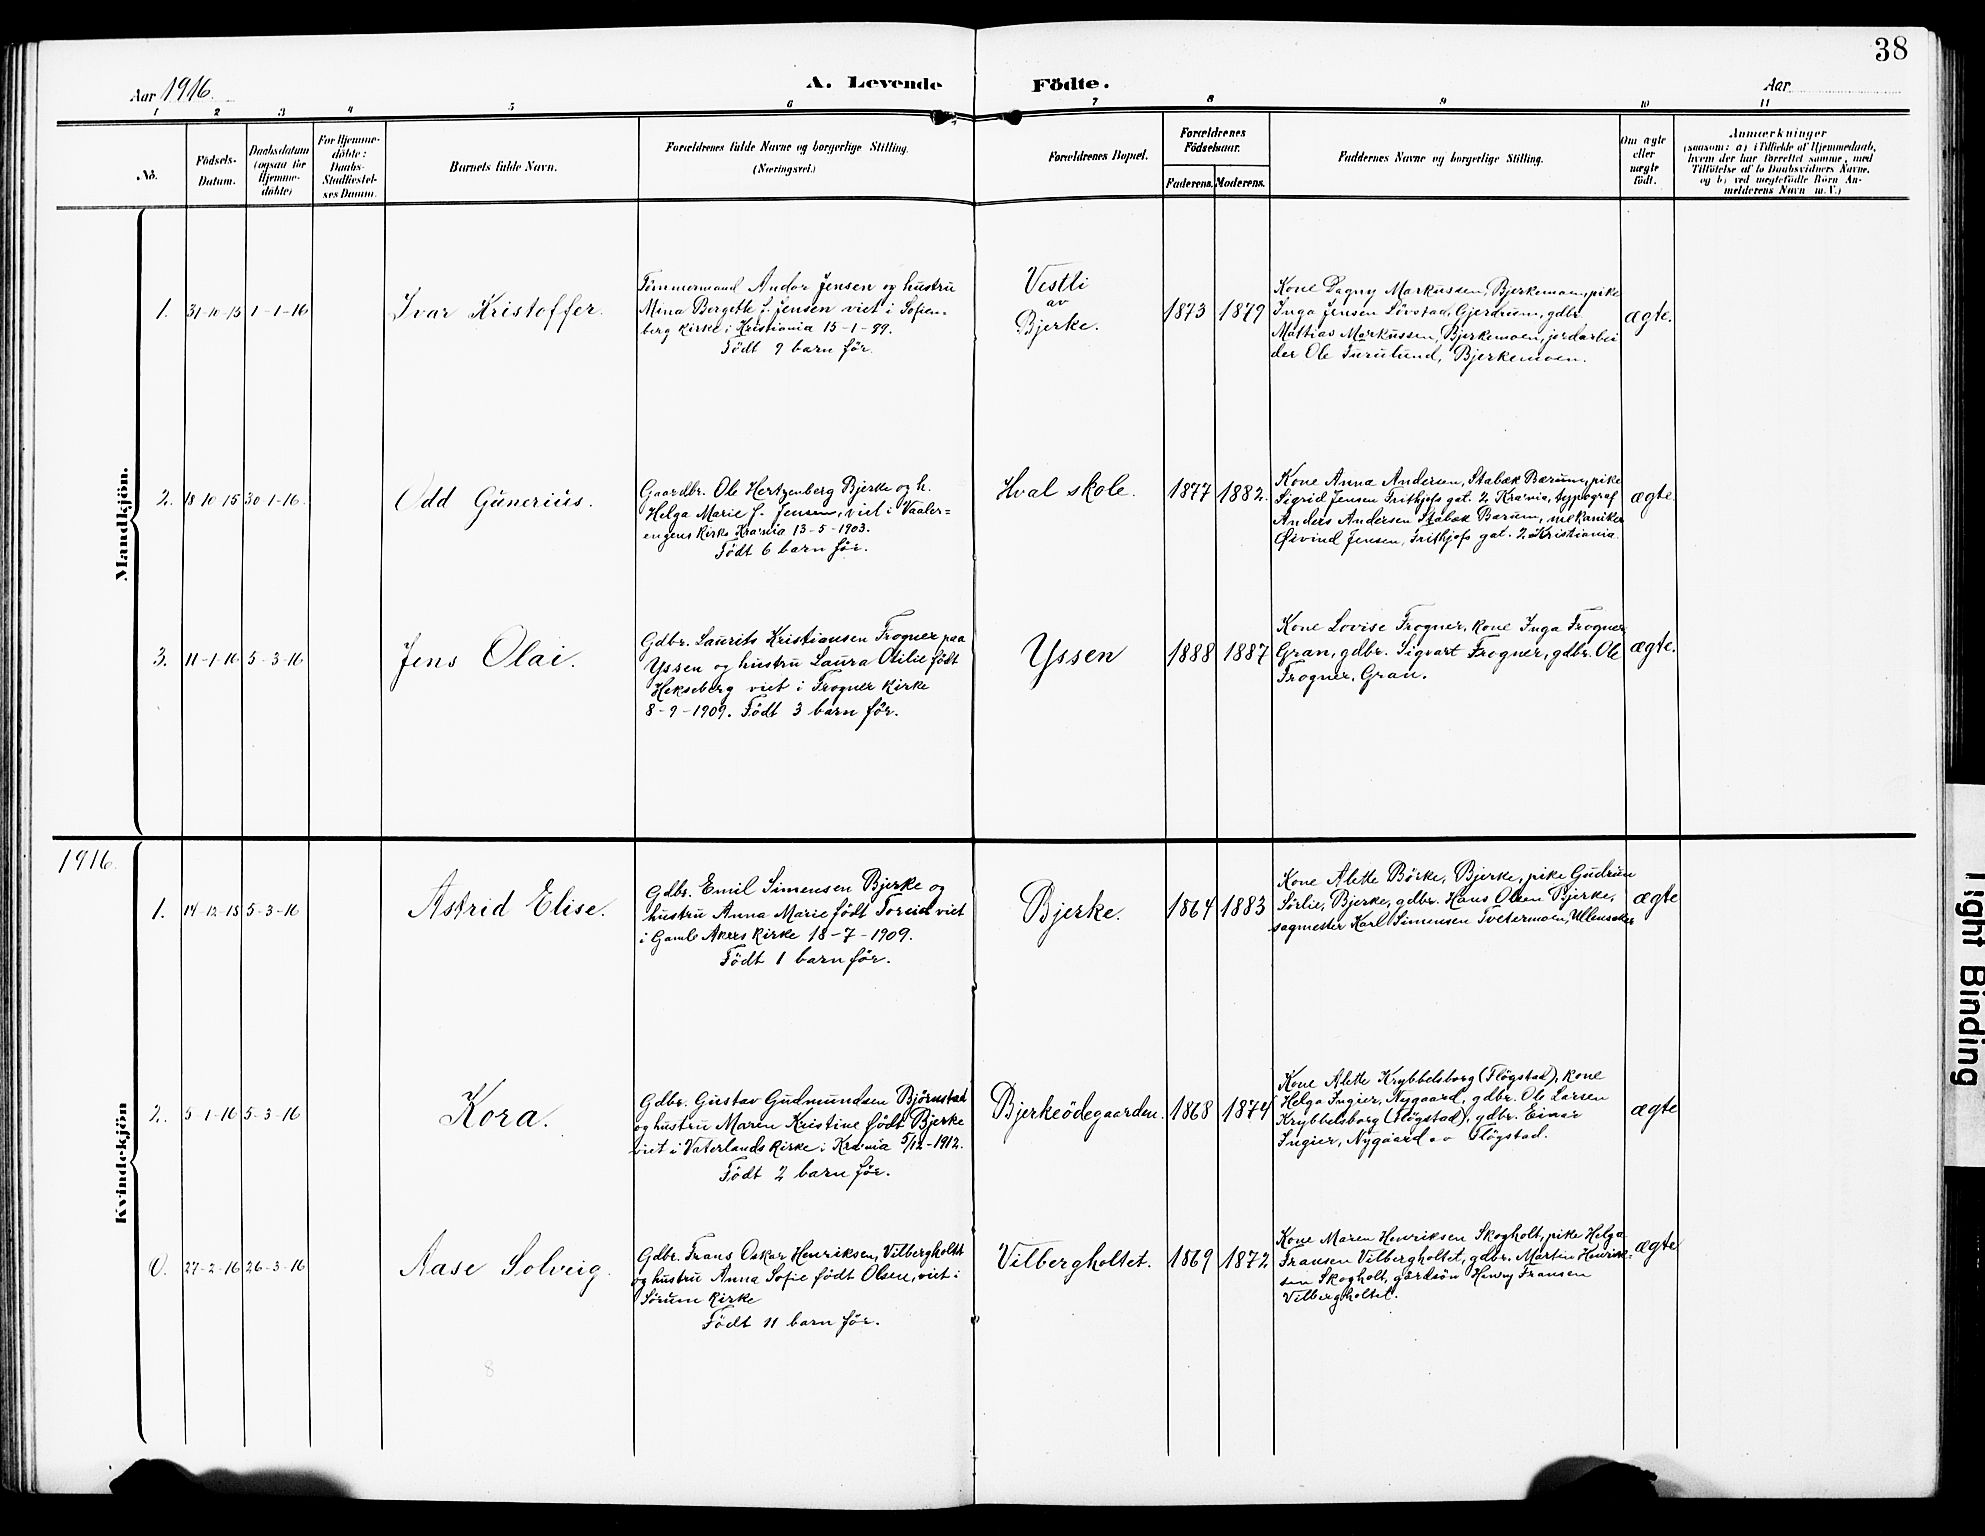 38
Aar 1916.
A. Levende Födte.
Aar
1 2 3 4 5 6 7 8 9 10 11
No.
Födsels-Datum.
Daabsdatum (ogsaa for Hjemme-döbte)
For Hjemme-döbte: Daabs-Stadfæstel-ses Datum.
Barnets fulde Navn.
Forældrenes fulde Navne og borgerlige Stilling. (Næringsvei.)
Forældrenes Bopæl.
Forældrenes Födselsaar.
Faderens. Moderens.
Faddernes Navne og borgerlige Stilling.
Om ægte eller uægte födt.
Anmærkninger
(saasom: a) i Tilfælde af Hjemmedaab,
hvem der har forrettet samme, med
Tilföielse af to Daabsvidners Navne,
og b) ved uægtefödte Börn An-
melderens Navn m. V.)
Mandkjön.
1. 31-10-15 1-1-16
Ivar Kristoffer.
Tømmermand Andor Jensen og hustru
Mina Bergette f. Jensen viet i Sofien-
berg kirke i Kristiania 15-1-99.
Født 9 barn før.
Vestli
av
Bjerke.
1873 1879
Kone Dagny Markussen, Bjerkemoen, pike
Inga Jensen Lövstad, Gjerdrum, gdbr.
Mathias Markussen, Bjerkemoen, jordarbei
der Ole Furulund, Bjerkemoen.
ægte.
2. 18-10-15 30-1-16.
Odd Gunerius.
Gaardbr. Ole Hertzenberg Bjerke og h.
Helga Marie f. Jensen, viet i Vaaler-
engens kirke Kra.nia 13-5-1903.
Født 6 barn før.
Hval skole.
1877 1882.
Kone Anna Andersen, Stabæk Bærum, pike
Sigrid Jensen Frithjofs gat. 2 Kra.nia, typograf
Anders Andersen Stabæk Bærum, mekaniker
Øivind Jensen, Frithjofs gat. 2 Kristiania.
ægte
3. 11-1-16 5-3-16
Jens Olai.
Gdbr. Laurits Kristiansen Frogner paa
Yssen og hustru Laura Otilie født
Hekseberg viet i Frogner kirke
8-9-1909. Født 3 barn før.
Yssen
1888 1887
Kone Lovise Frogner, kone Inga Frogner
Gran, gdbr. Sigvart Frogner, gdbr. Ole
Frogner, Gran.
ægte.
1916.
Kvindekjön
1. 14-12-15 5-3-16
Astrid Elise.
Gdbr. Emil Simensen Bjerke og
hustru Anna Marie født viet
i Gamle Akers kirke 18-7-1909.
Født 1 barn før.
Bjerke.
1864 1883
Kone Alette Börke, Bjerke, pike Gudrun
Sørlie, Bjerke, gdbr. Hans Olsen Bjerke,
sagmester Karl Simensen Tvetermoen, Ullensaker
ægte
2. 5-1-16 5-3-16
Kora.
Gdbr. Gustav Gudmundsen Björnstad
og hustru Maren Kristine født Bjerke
viet i Vaterlands kirke i Kra.nia 5/12-1912.
Født 2 barn før.
Bjerkeödegaarden.
1868 1874
Kone Alette Krybbelsborg (Flögstad), kone
Helga Ingier, Nygaard, gdbr. Ole Larsen
Krybbelsborg (Flögstad), gdbr. Einar
Ingier, Nygaard av Flögstad.
ægte
0. 27-2-16 26-3-16
Aase Solveig.
Gdbr. Frans Oskar Henriksen, Vilbergholtet
og hustru Anna Sofie født Olsen, viet i
Sörum kirke
Født 11 barn før.
Vilbergholtet.
1869 1872
Kone Maren Henriksen Skogholt, pike Helga
Fransen Vilbergholtet, gdbr. Martin Henrik-
sen Skogholt, gårdsön Henry Fransen
Vilbergholtet.
ægte
8
Tight Binding